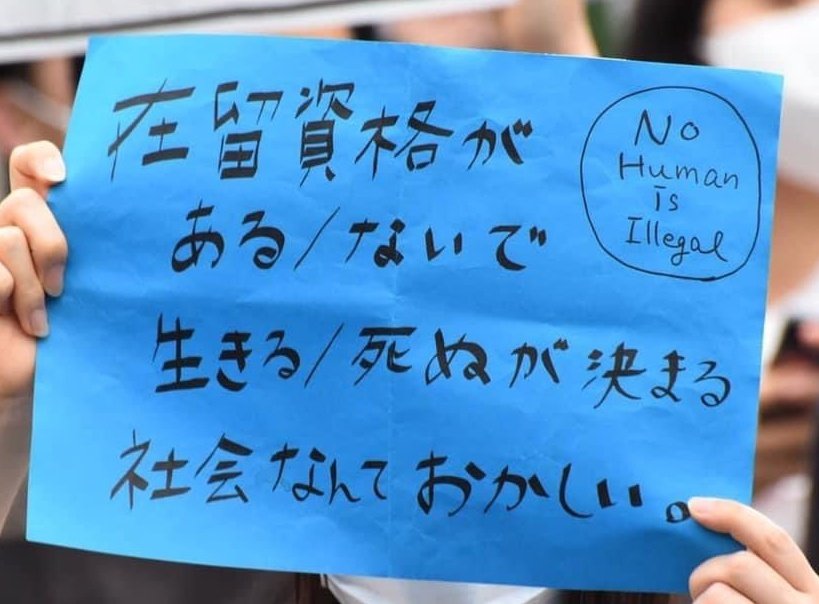 在留資格が
ある/ないで
生きる/死ぬが決まる
社会なんておかしい。
No
Human
is
Illegal